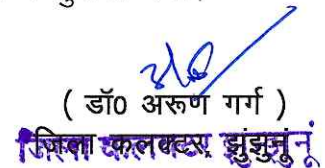 ( डॉ0 अरूण गर्ग )
जिला कलक्टर झुंझुनूं